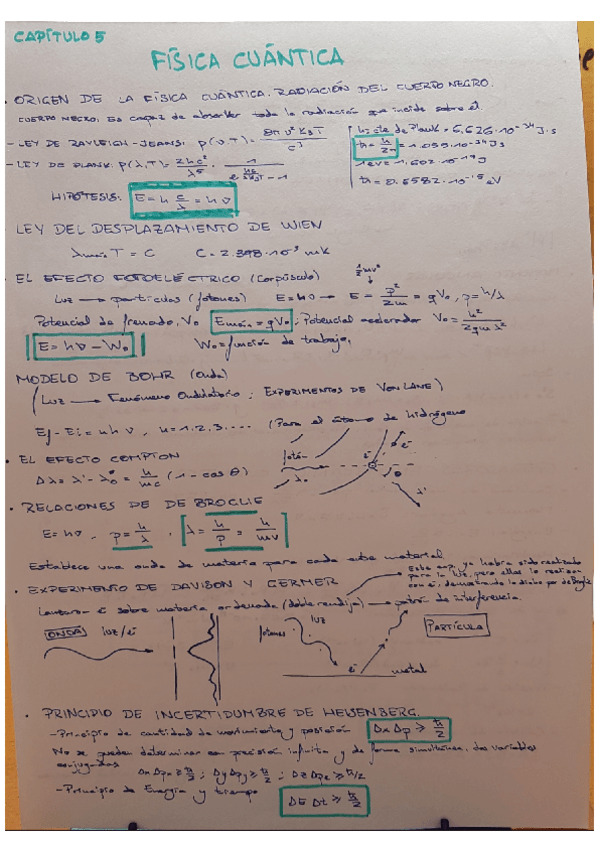 CAPÍTULO 5
FÍSICA CUÁNTICA
· ORIGEN DE LA FÍSICA CUÁNTICA. RADIACIÓN DEL CUERPO NEGRO.
CUERPO NEGRO: Es capaz de absorber toda la radiación que incide sobre él.
- LEY DE RAYLEIGH-JEANS: ρ(ν,T) = 8πν²K_BT / c³
cte de Plank = 6,626·10⁻³⁴ J·s
- LEY DE PLANK: ρ(λ,T) =
ħ = h/2π = 1.055·10⁻³⁴ Js
1eV = 1.602·10⁻¹⁹ J
ħ = 0.6582·10⁻¹⁵ eV
HIPÓTESIS: E = h c/λ = hν
LEY DEL DESPLAZAMIENTO DE WIEN
λmáx T = C C = 2.898·10⁻³ mK
· EL EFECTO FOTOELÉCTRICO (Corpúsculo)
½mv²
Luz → partículas (fotones) E = hν → E = p²/2m = qV₀, p = h/λ
Potencial de frenado, V₀ Emáx = qV₀; Potencial acelerador V₀ = h²/2qmλ²
E = hν - W₀ W₀ = función de trabajo.
MODELO DE BOHR (Onda)
Luz → Fenómeno Ondulatorio; EXPERIMENTOS DE VON LAUE)
Ef - Ei = nhν, n = 1,2,3.... (Para el átomo de hidrógeno
· EL EFECTO COMPTON
Δλ = λ' - λ₀ = h/mc (1 - cos θ)
fotón
λ₀
e⁻
e⁻
θ
λ'
· RELACIONES DE DE BROGLIE
E = hν, p = h/λ, [λ = h/p = h/mv]
Establece una onda de materia para cada ente material.
Este exp. ya había sido realizado para la luz, pero ellos lo realizan con e⁻, demostrando lo dicho por de Broglie
· EXPERIMENTO DE DAVISON Y GERMER
Lanzaron e⁻ sobre materia ordenada (doble rendija) → patrón de interferencia.
ONDA luz/e⁻
luz
fotones
e⁻
metal
PARTÍCULA
· PRINCIPIO DE INCERTIDUMBRE DE HEISENBERG.
- Principio de cantidad de movimiento y posición Δx Δp ≥ ħ/2
No se pueden determinar con precisión infinita y de forma simultánea, dos variables
conjugadas
Δx Δpx ≥ ħ/2; Δy Δpy ≥ ħ/2; Δz Δpz ≥ ħ/2
- Principio de Energía y tiempo ΔE Δt ≥ ħ/2